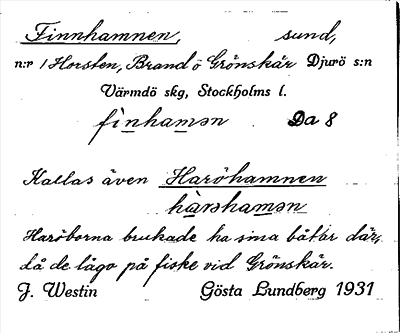 Finnhamnen, sund,
n:r 1 Horsten, Brandö Grönskär Djurö s:n
Värmdö skg, Stockholms l.
fìnhamən Da 8
Kallas även Haröhamnen
hàrəhamən
Haröborna brukade ha sina båtar där,
då de lågo på fiske vid Grönskär.
J. Westin Gösta Lundberg 1931